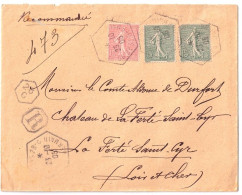 Recommandée
473
R
Monsieur le Comte Alonse de Durfort
Château de La Ferté Saint-Cyr
La Ferté Saint-Cyr
(Loir et Cher)